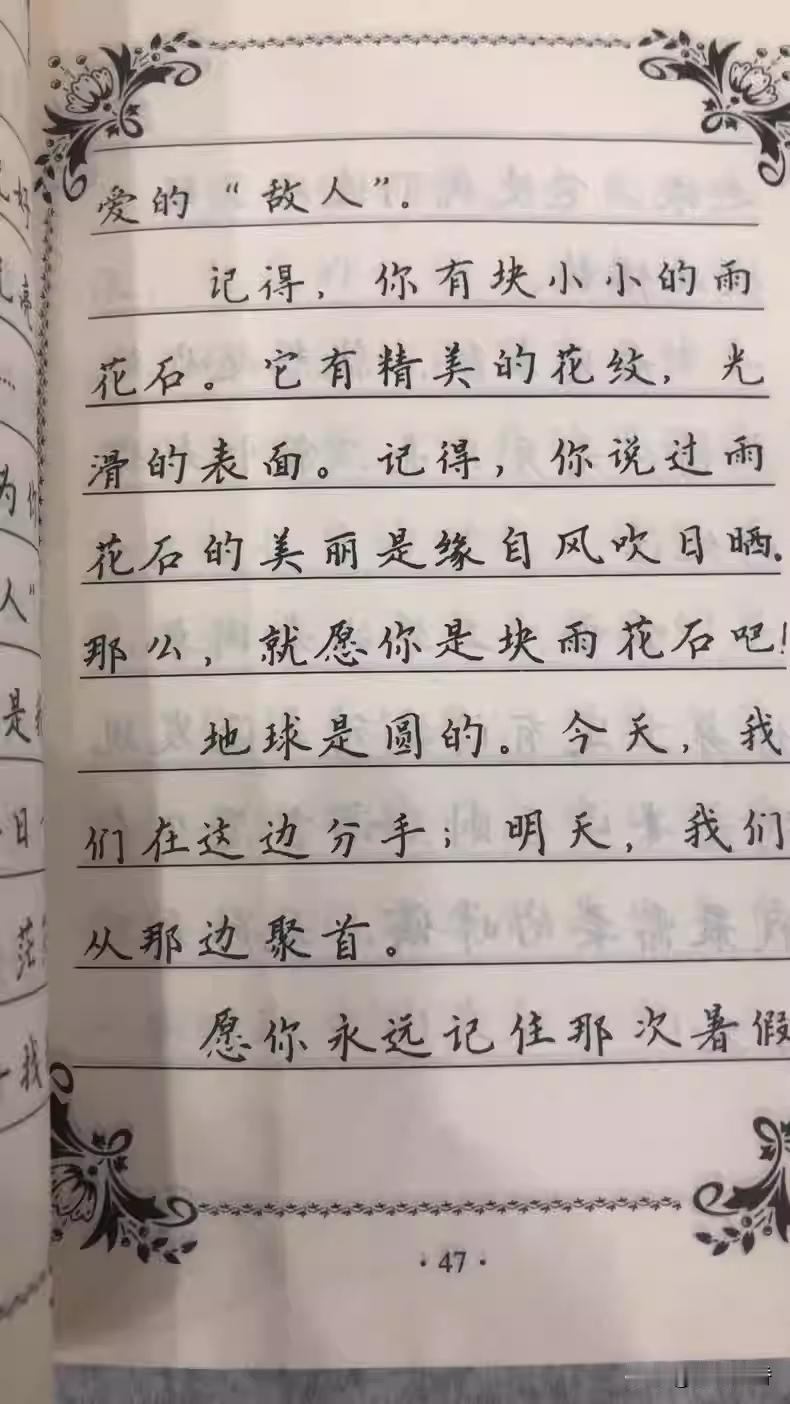 爱的“敌人”.
记得，你有块小小的雨
花石。它有精美的花纹，光
滑的表面。记得，你说过雨
花石的美丽是缘自风吹日晒.
那么，就愿你是块雨花石吧！
地球是圆的。今天，我
们在这边分手；明天，我们
从那边聚首。
愿你永远记住那次暑假
·47·